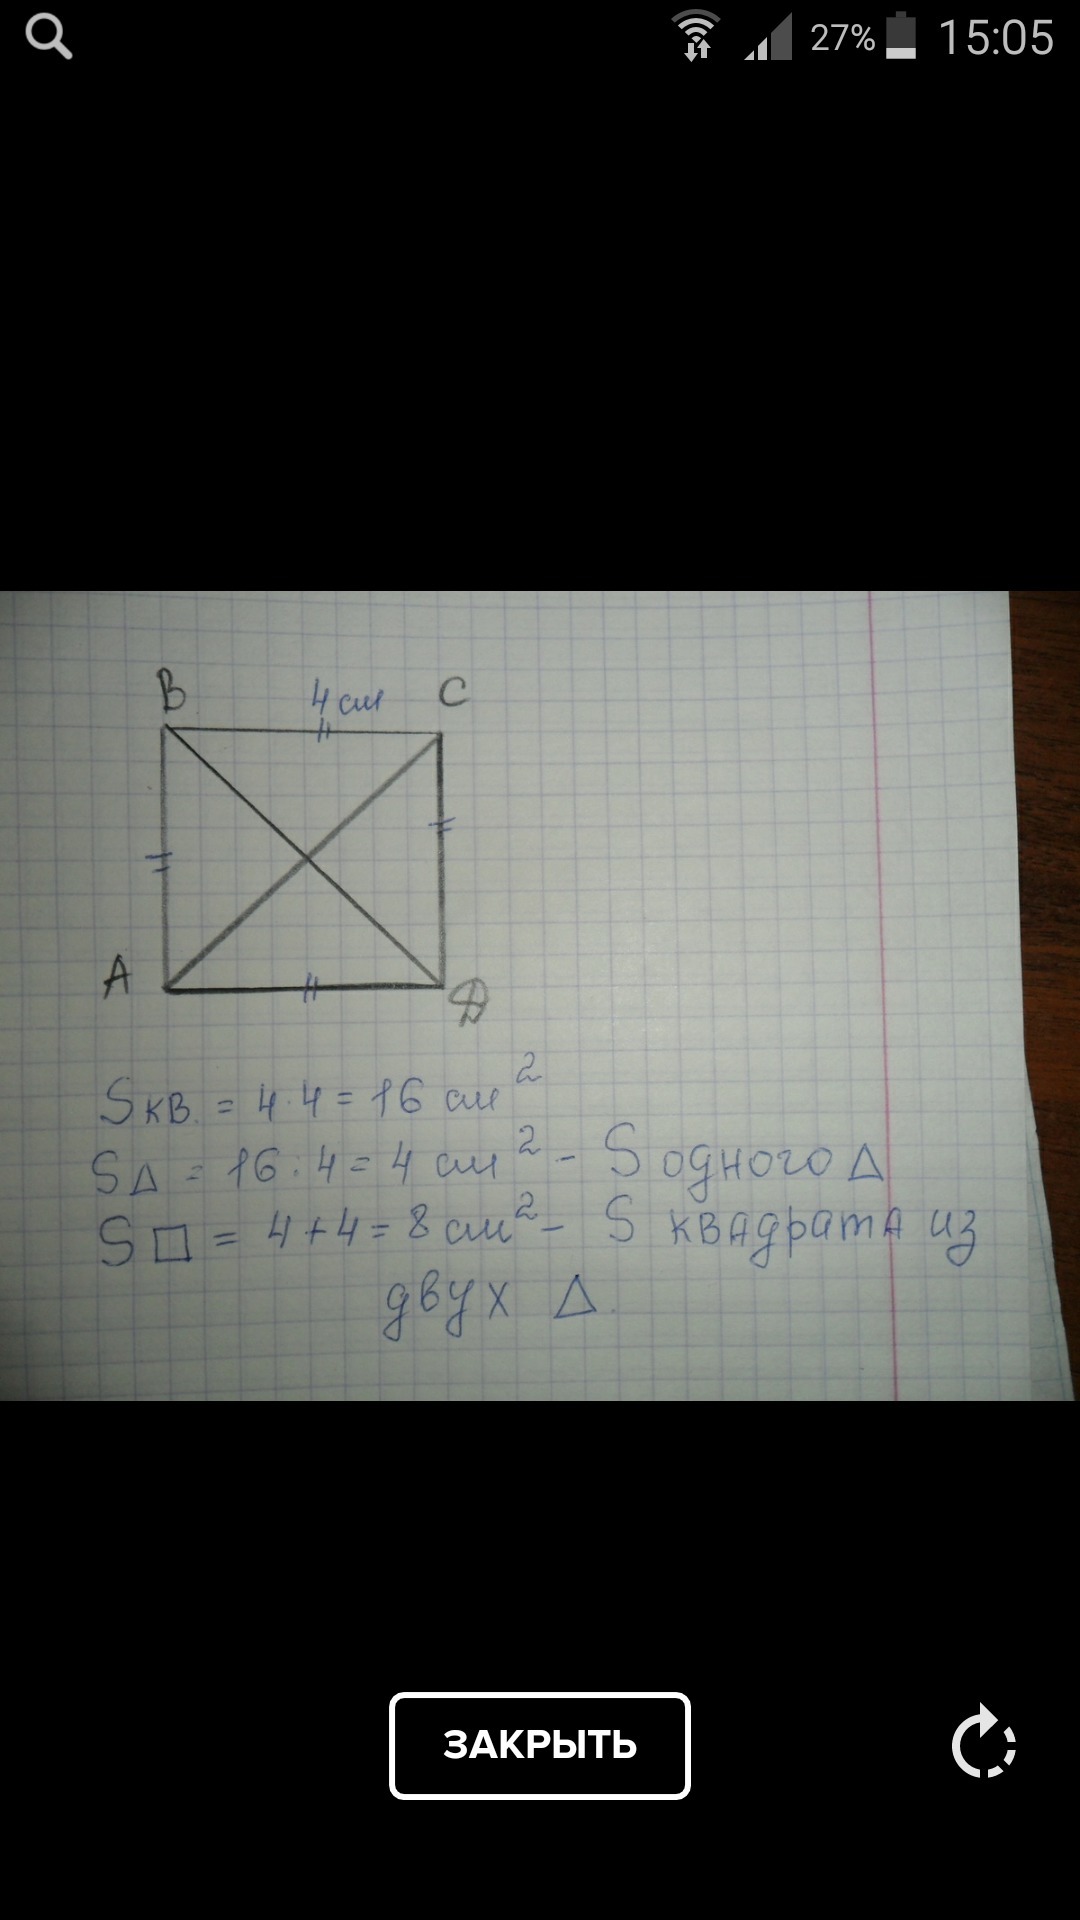 27% 15:05
B 4 см C
A D
Sкв. = 4·4 = 16 см²
S△ = 16:4 = 4 см² - S одного △
S□ = 4+4 = 8 см² - S квадрата из
двух △.
ЗАКРЫТЬ